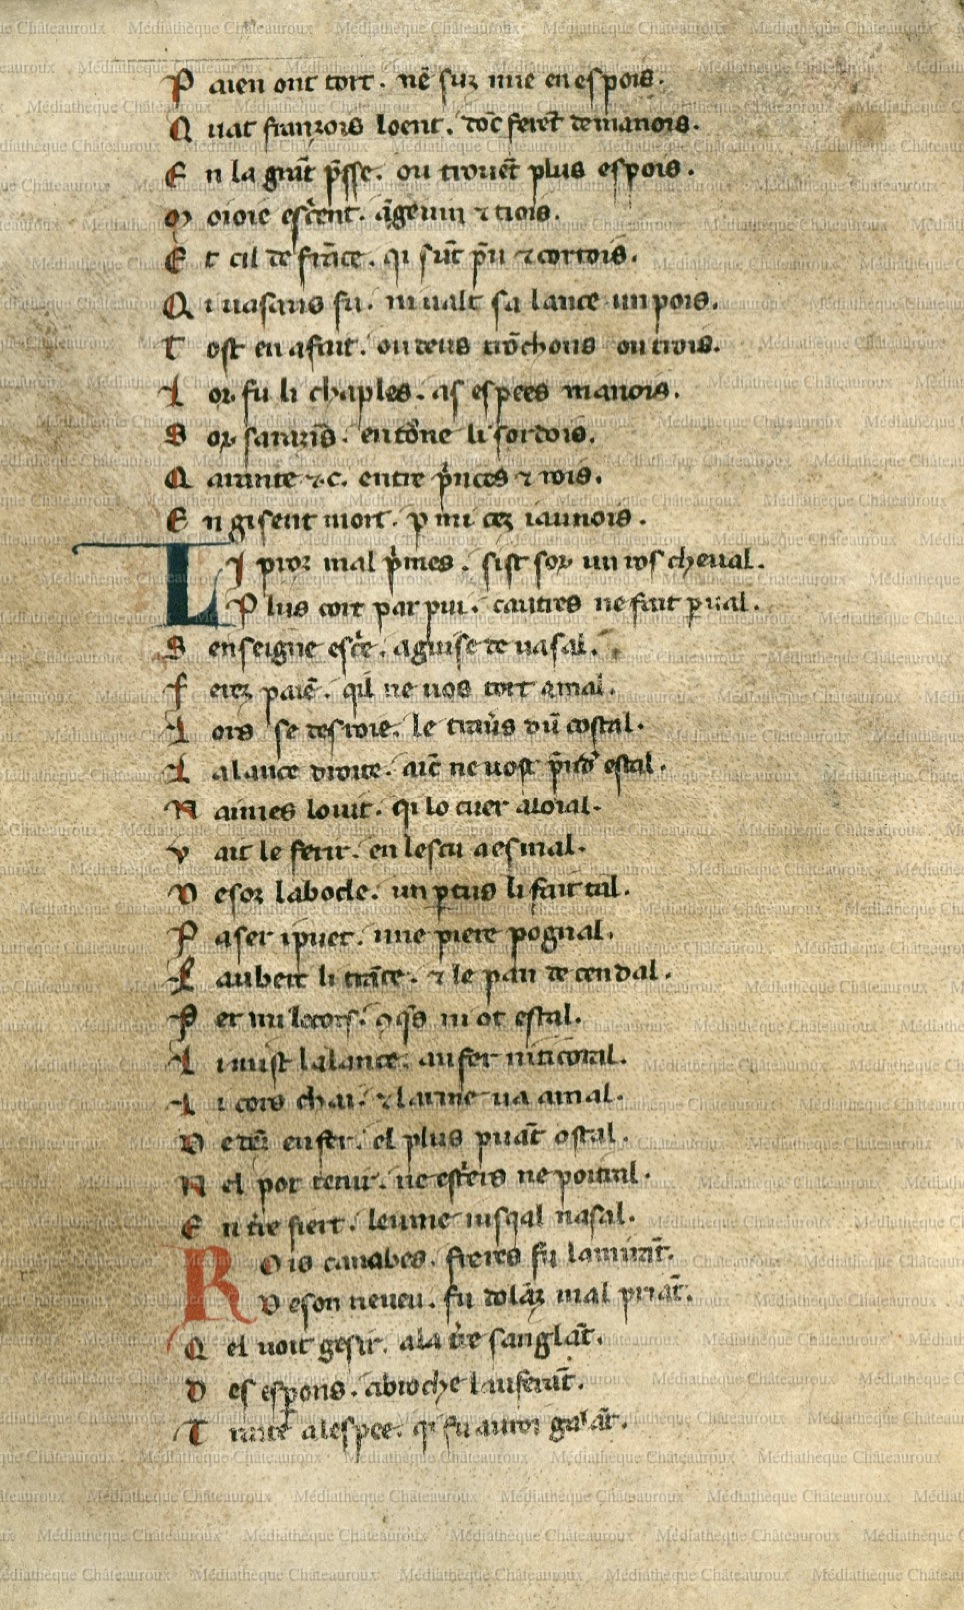 P aien ont tort . nē suz mie en espois.
Q uāt franzois loent . dōc ferēt demanois.
E n la grāt p̄sse . ou trouēt plus espois .
M oioie escͥent . āgeuin ⁊ tiois.
E t cil de frāce . qi sūt p̄u ⁊ cortois.
Q i uasaus fu . ni ualt sa lance un pois.
T ost en a fait . ou deus trōchons ou trois.
L or fu li chaples . as espees manois.
S or sarazīs . en tōͬne li sordois.
Q arante ⁊ .c. entre pͥnces ⁊ rois.
E n gisent mort . p mi cez iaunois .
L I proz mal pͥmes . sist sor un ros cheual .
P lus cort par pui . cautres ne fait p ual .
S enseigne escͥe . a guise de uasal .
F erez paiē . qil ne uos tort a mal .
L ors se desroie . le trauͥs dū costal .
L a lance droite . aīc ne uost p̄ndͬ estal .
N aimes louit . qi lo cuer a loial .
V ait le ferir . en lescu a esmal .
D esoz la bocle . un ptuis li fait tal .
P aser i puet . une piere pognal .
E aubert li trāce . ⁊ le pan de cendal .
P er mi lo cors . ꝯqͥs ni ot estal .
L i mist la lance . au fer
L i cors chai . ⁊ larme ua a mal .
D edēz enfer . el plus puāt ostal .
N el pot tenir . ne estͥers ne poitral .
E n tͥre fiert . leume iusqal nasal .
R O is canabes . freres fu lamirāt .
D e son neueu . fu dolāz mal priāt .
Q el uoit gesir . a la tͥre sanglāt .
D es espons . a broche lauferāt .
T raite a lespee . qi fu au roi galāt .
Médiathèque Châteauroux